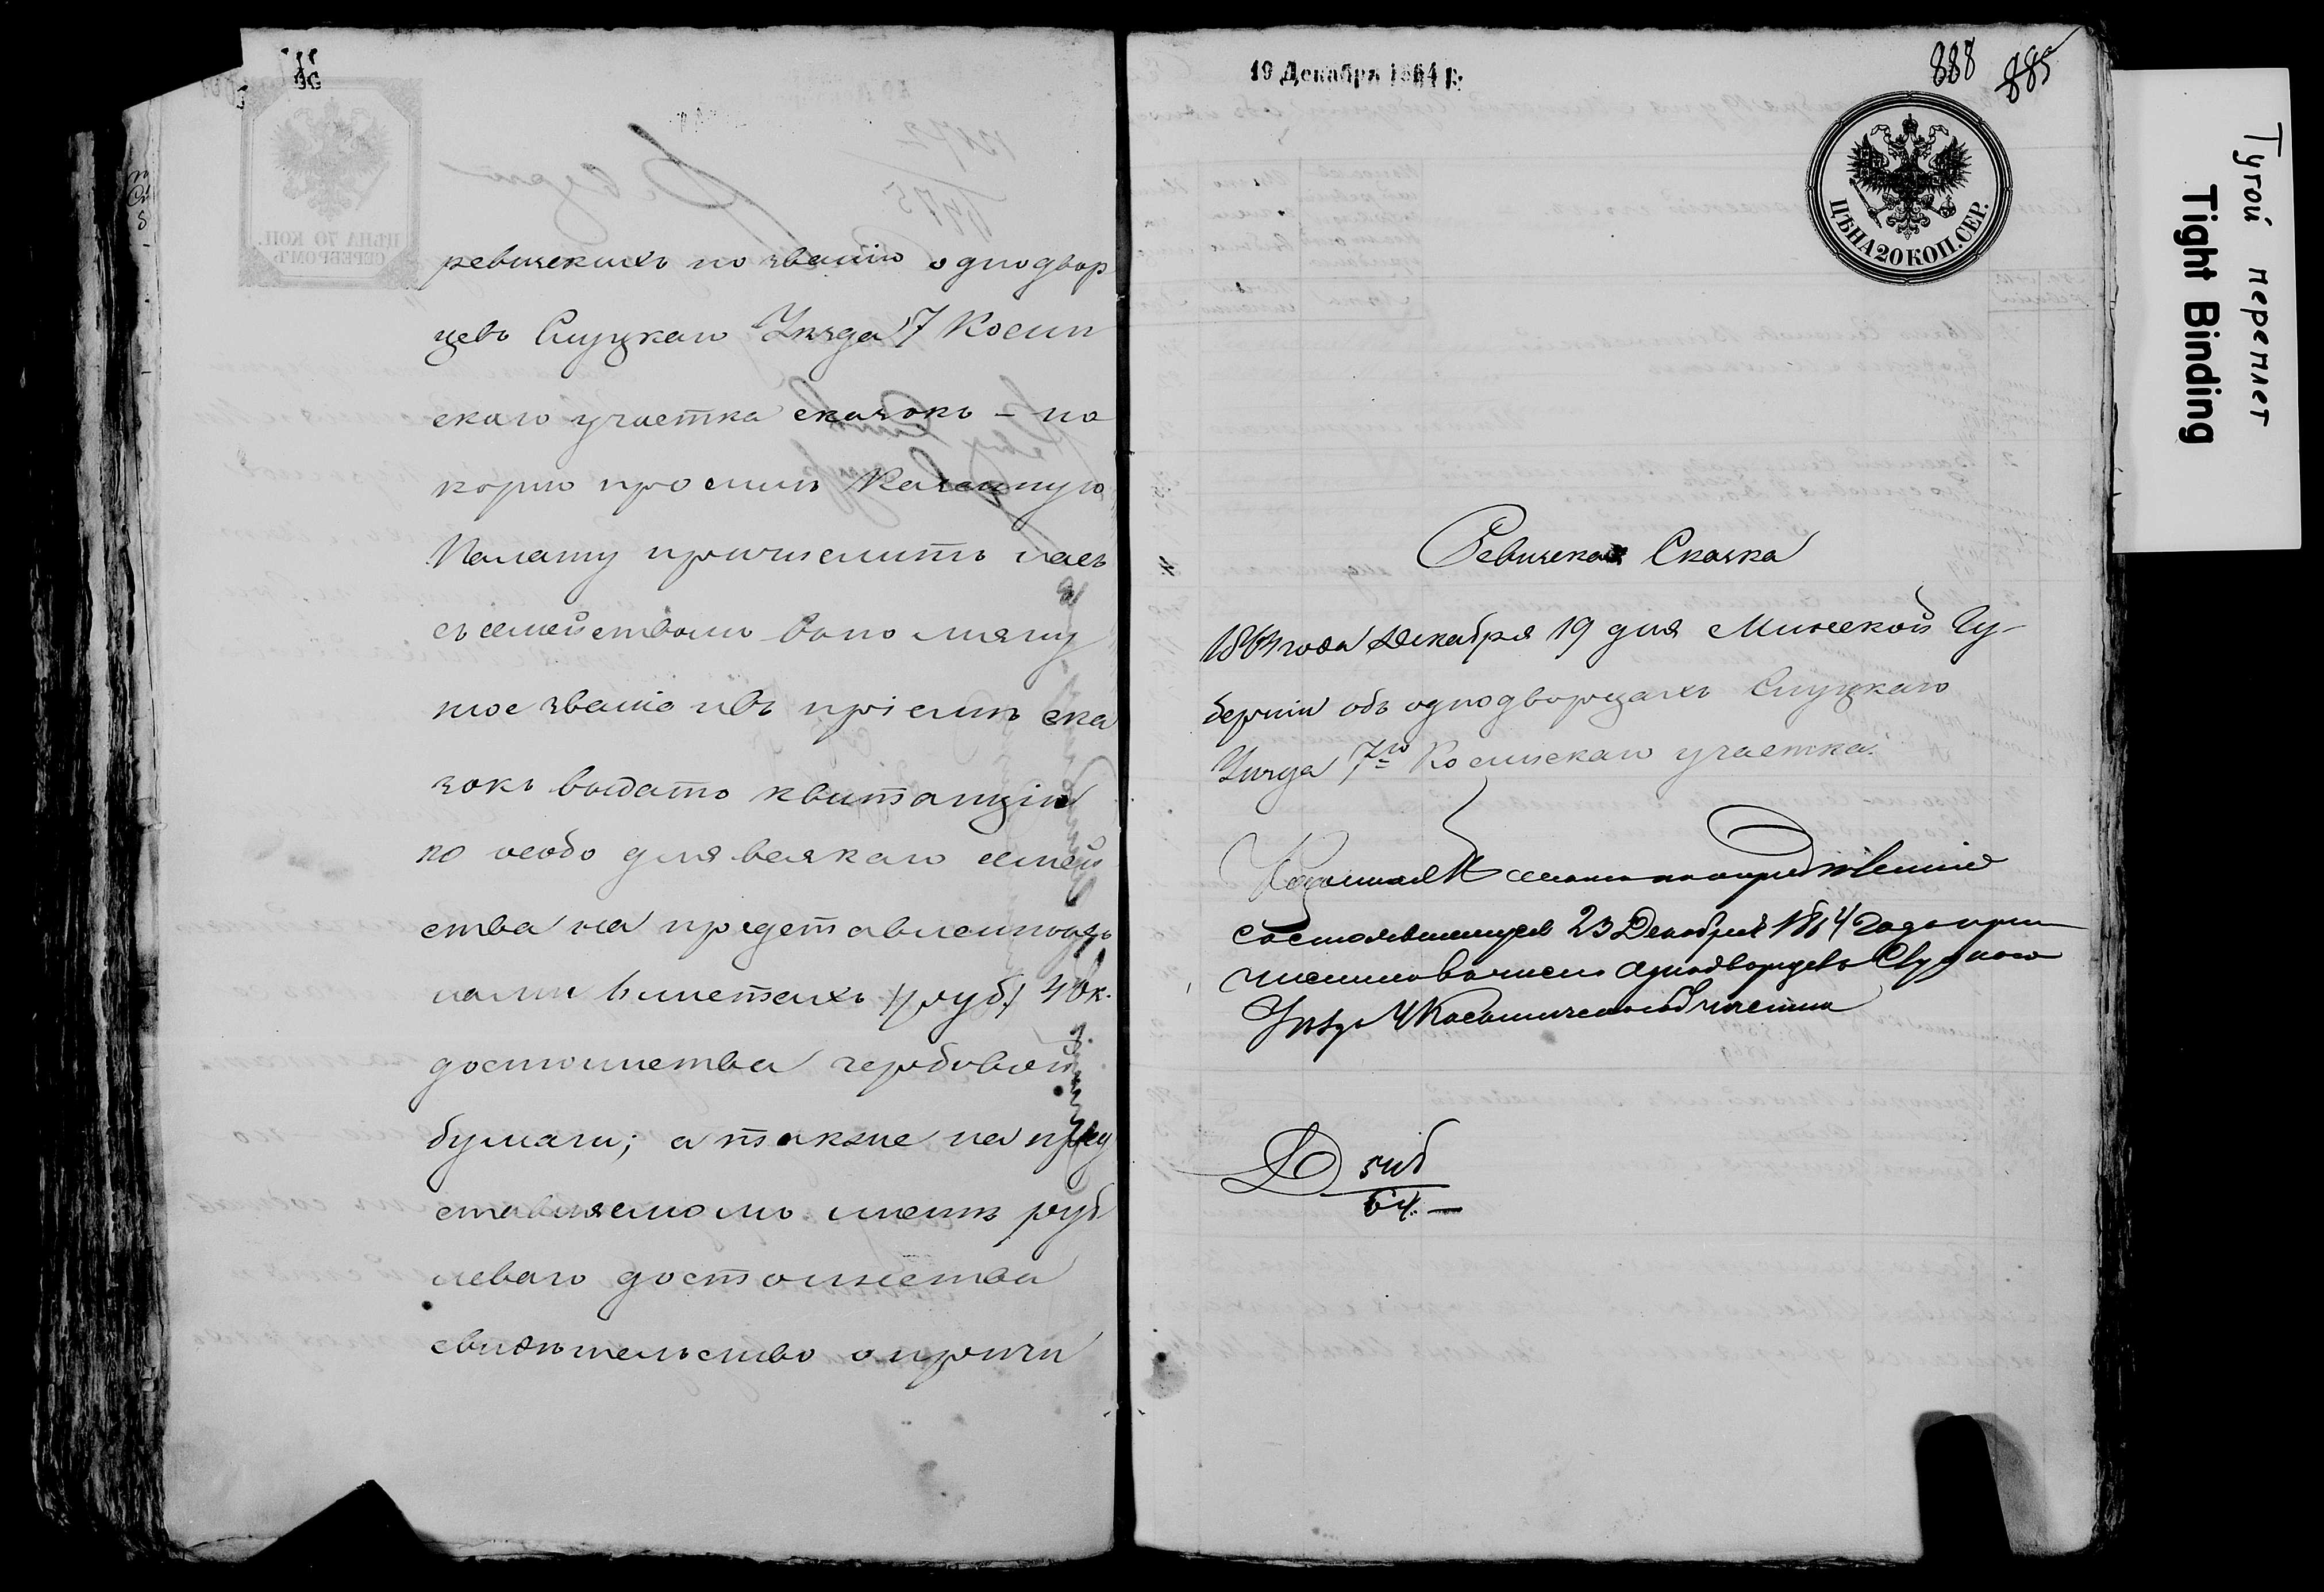 ревизскихъ по званію однодвор
цевъ Слуцкаго Уѣзда 7 Косин
скаго участка сказокъ – по
корно просимъ Казенную
Палату причислить насъ
съ семействами въ помяну
тое званіе и въ пріемѣ ска
зокъ выдать квитанціи
по особо для всякаго семей
ства на представленныхъ
нами листахъ руб. 40 к.
достоинства гербовой
бумаги; а также на пред
ставляемомъ листѣ руб
леваго достоинства
свидѣтельство о причи
19 Декабря 1864 г.
888 885
ЦѢНА 20 КОП. СЕР.
Ревизская Сказка
1864 года Декабря 19 дня Минской Гу-
берніи объ однодворцахъ Слуцкаго
Уѣзда 7го Косинскаго участка.
Казенная Палата по опредѣленію
состоявшемуся 23 Декабря 1864 года при
числила въ число однодворцевъ Слуцкаго
Уѣзда участка
64
Тугой переплет
Tight Binding
ЦѢНА 70 КОП.
СЕРЕБРОМЪ